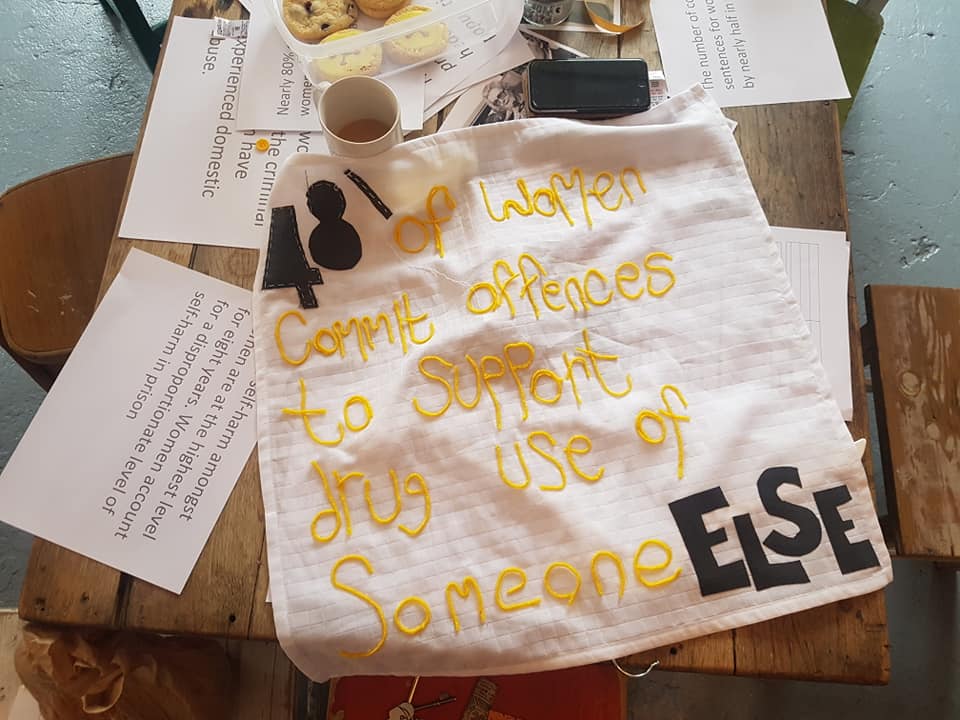 48% of women
Commit offences
to support
drug use of
Someone ELSE
have
experienced domestic
Nearly 80%
the criminal
The number of
sentences for
by nearly half in
self-harm amongst
are at the highest level
for eight years. Women account
for a disproportionate level of
self-harm in prison